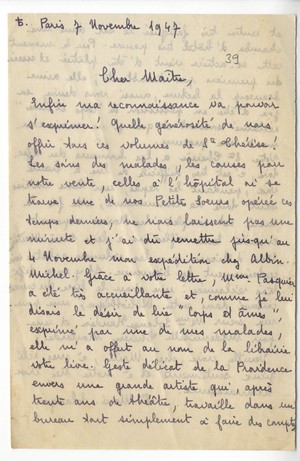 t. Paris 7 Novembre 1947
39
Cher Maître,
Enfin ma reconnaissance va pouvoir
s'exprimer! Quelle générosité de nous
offrir tous ces volumes de Ste Thérèse!
Les soins des malades, les courses pour
notre vente, celles à l'hôpital où se
trouve une de nos Petites Soeurs opérée ces
temps derniers, ne nous laissent pas une
minute et j'ai dû remettre jusqu'au
4 Novembre mon expédition chez Albin-
Michel. Grâce à votre lettre, Mme Pasquier
a été très accueillante et, comme je lui
disais le désir de lire "Corps et âmes",
exprimé par une de mes malades,
elle m'a offert au nom de la librairie
votre livre. Geste délicat de la Providence
envers une grande artiste qui, après
trente ans de théâtre, travaille dans un
bureau tout simplement à faire des comptes